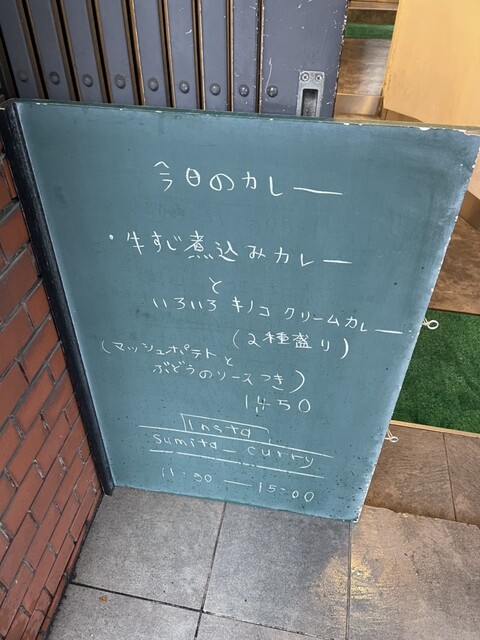 今日のカレー
・牛すじ煮込みカレー
と
いろいろキノコクリームカレー
(2種盛り)
(マッシュポテトと
ぶどうのソースつき)
1450
insta
sumita_curry
11:30ー15:00